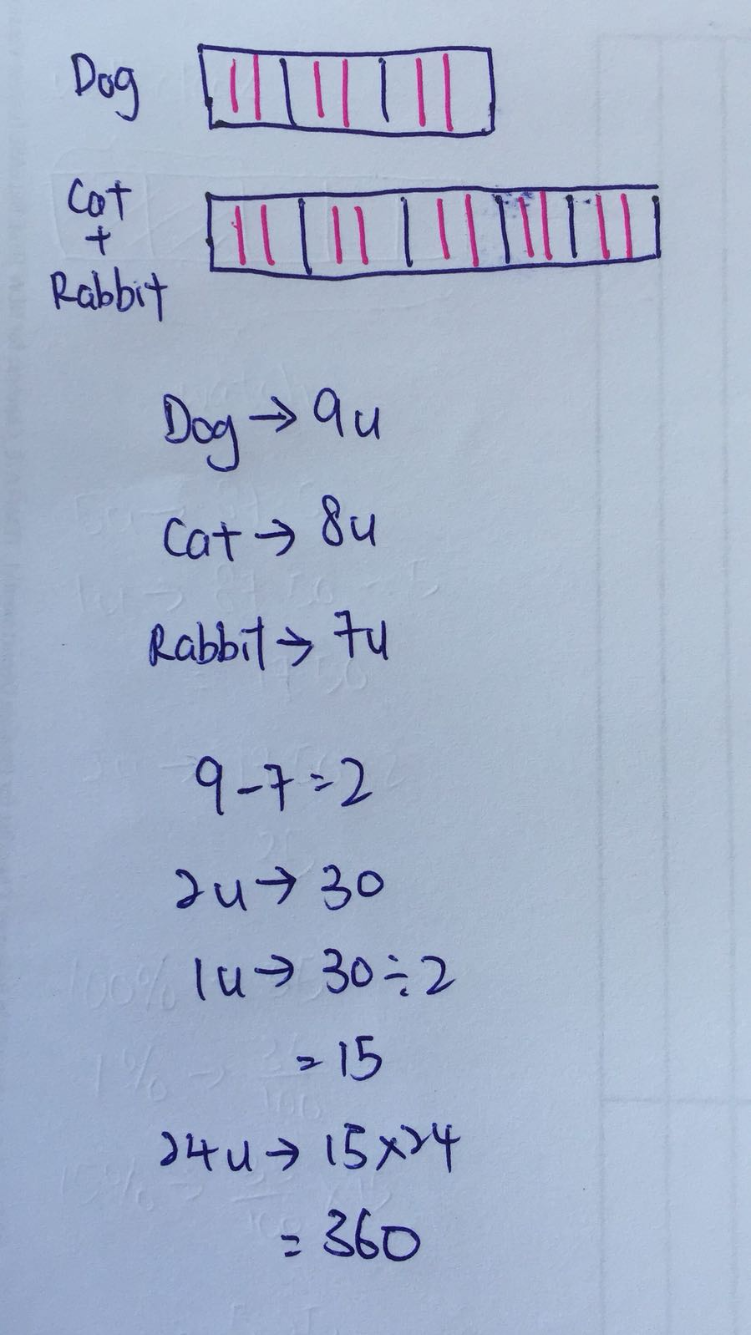 Dog
Cat
+
Rabbit
Dog → 9u
Cat → 8u
Rabbit → 7u
9 - 7 = 2
2u → 30
1u → 30 ÷ 2
= 15
24u → 15 × 24
= 360